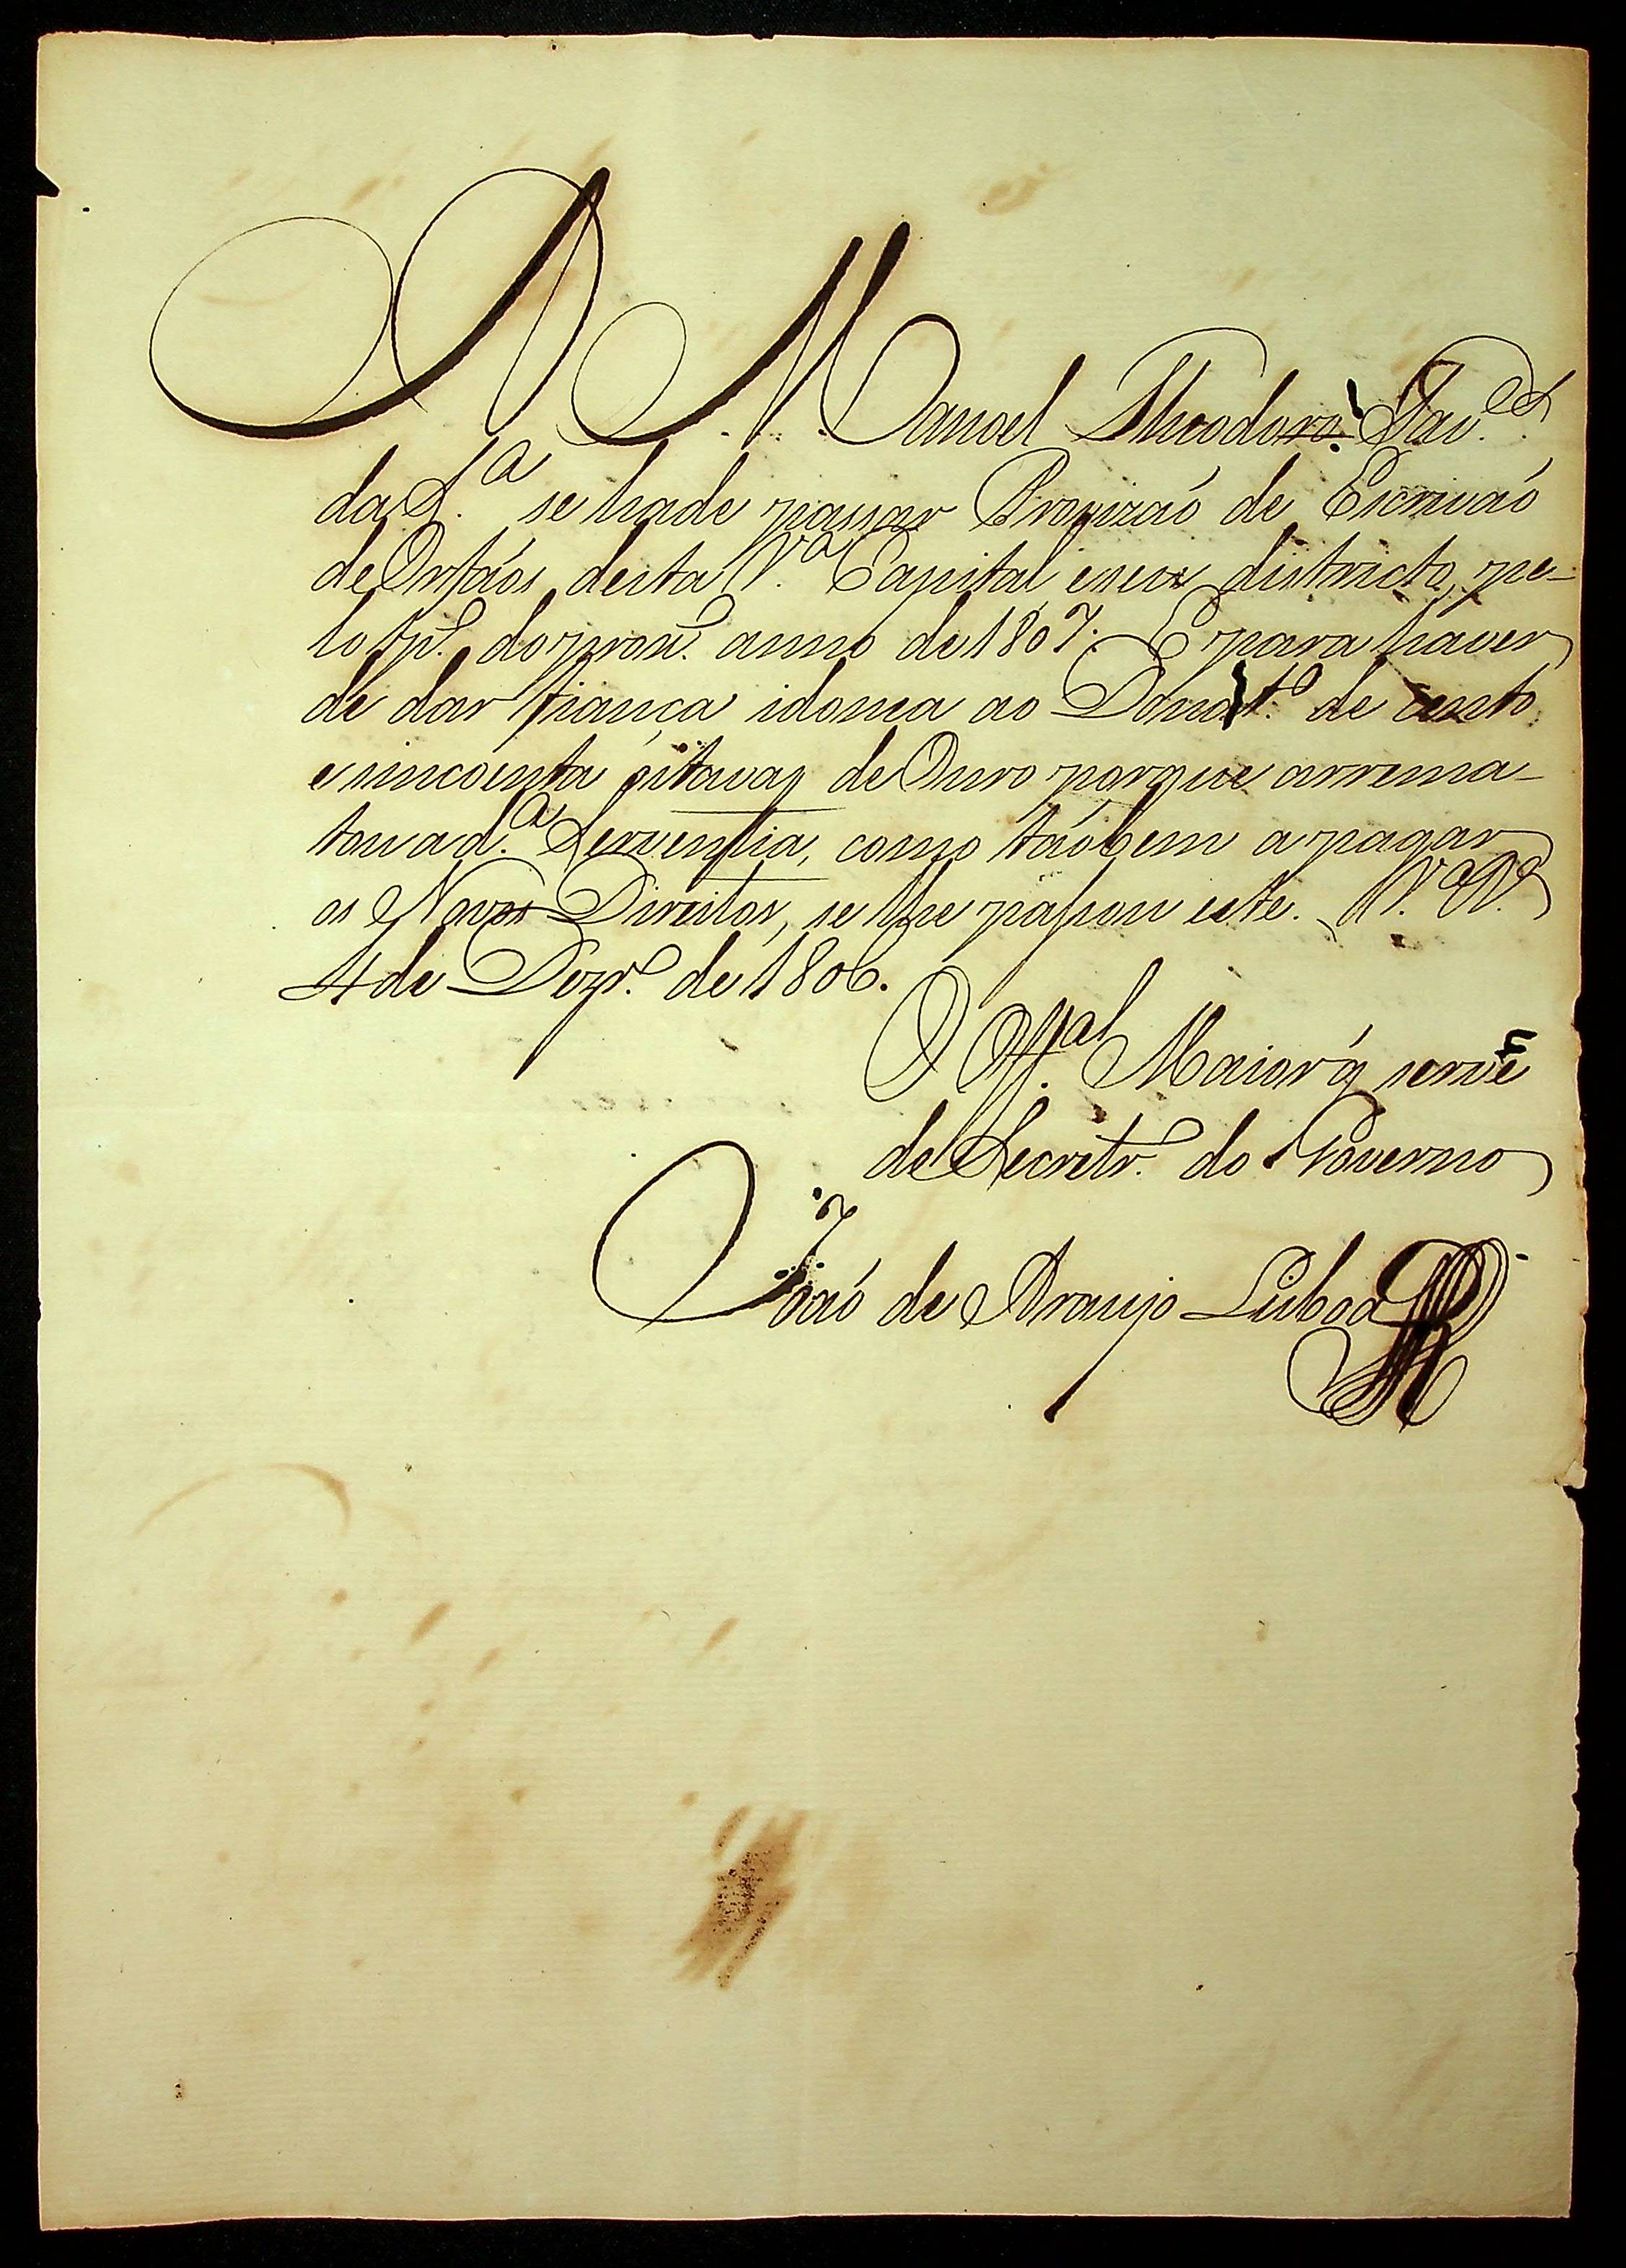 A Manoel Theodoro Tav.es
da S.a se hade passar Provizaó de Escrivaó
de Orfáos desta V.a Capital e seu districto, pe-
lo tp.o do prox.o anno de 1807. E para haver
de dar fiança idonea ao Donat.o de cento
e sincoenta oitavas de Ouro porque arrema-
tou a d.a Serventia, como taóbem a pagar
os Novos Direitos, se lhe passou este. V.a
4 de Dezr.o de 1806.
O Off.al Maior q serve
de Secretr.o do Governo
Joaó de Araujo Lisboa